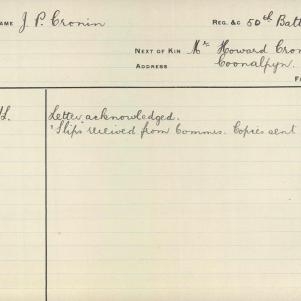 NAME J. P. Cronin REG. &C 50th Batt
NEXT OF KIN Mr. Howard Cron
ADDRESS Coonalpyn.
Letter acknowledged.
"Slips" received from Commis. Copies sent